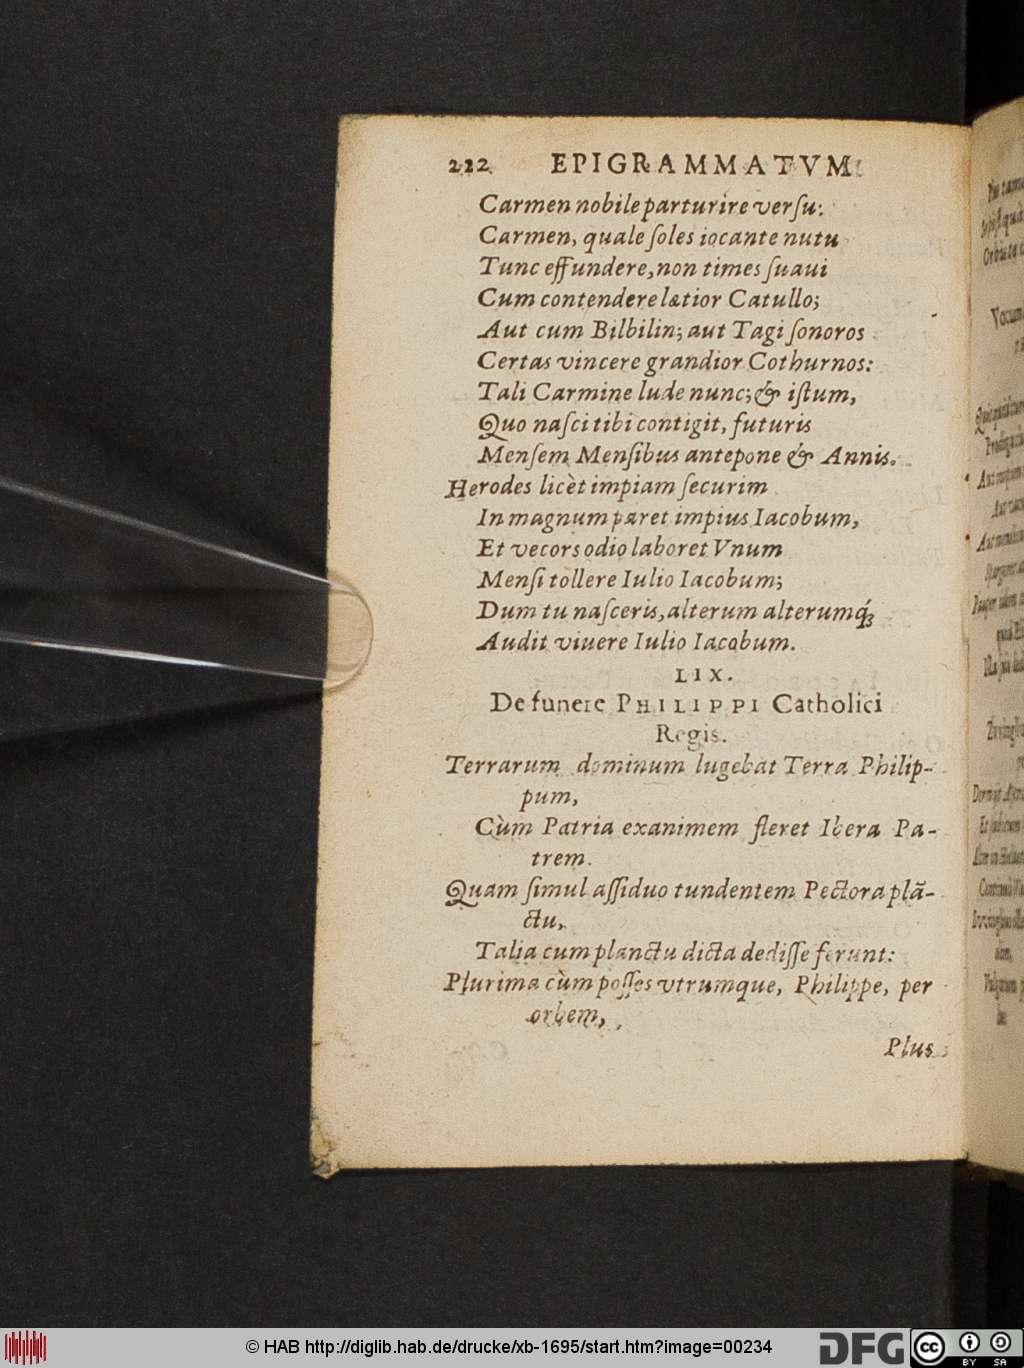 222 EPIGRAMMATVM
Carmen nobile parturire verſu:
Carmen, quale ſoles iocante nutu
Tunc effundere, non times ſuaui
Cum contendere lætior Catullo;
Aut cum Bilbilin; aut Tagi ſonoros
Certas vincere grandior Cothurnos:
Tali Carmine lude nunc; & iſtum,
Quo naſci tibi contigit, futuris
Menſem Menſibus antepone & Annis.
Herodes licèt impiam ſecurim
In magnum paret impius Iacobum,
Et vecors odio laboret Vnum
Menſi tollere Iulio Iacobum;
Dum tu naſceris, alterum alterumq́;
Audit viuere Iulio Iacobum.
LIX.
De funere PHILIPPI Catholici
Regis.
Terrarum dominum lugebat Terra Philip-
pum,
Cùm Patria exanimem fleret Ibera Pa-
trem.
Quam ſimul aſſiduo tundentem Pectora plā-
ctu,
Talia cum planctu dicta dediſſe ferunt:
Plurima cùm poſſes vtrumque, Philippe, per
orbem,
Plus
© HAB http://diglib.hab.de/drucke/xb-1695/start.htm?image=00234
DFG
cc
BY SA